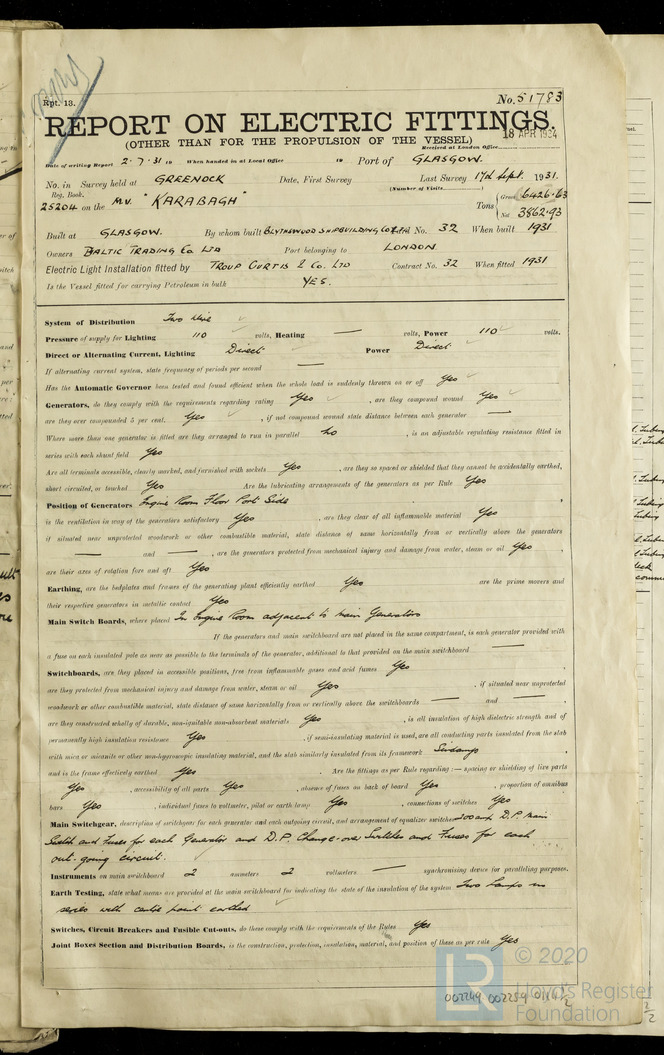 Rpt. 13.
No. 51783
REPORT ON ELECTRIC FITTINGS.
(OTHER THAN FOR THE PROPULSION OF THE VESSEL)
18 APR 1934
Received at London Office
Date of writing Report 2.7.31 19 When handed in at Local Office 19 Port of GLASGOW.
No. in Survey held at GREENOCK Date, First Survey Last Survey 17th Sept. 1931.
Reg. Book. (Number of Visits
25204 on the M.V. "KARABAGH" Tons { Gross 6426.63
Net 3862.93
Built at GLASGOW. By whom built BLYTHSWOOD SHIPBUILDING Co Ltd No. 32 When built 1931
Owners BALTIC TRADING Co. LTD Port belonging to LONDON.
Electric Light Installation fitted by TROUP CURTIS & Co. LTD Contract No. 32 When fitted 1931
Is the Vessel fitted for carrying Petroleum in bulk YES.
System of Distribution Two Wire
Pressure of supply for Lighting 110 volts, Heating — volts, Power 110 volts.
Direct or Alternating Current, Lighting Direct Power Direct
If alternating current system, state frequency of periods per second —
Has the Automatic Governor been tested and found efficient when the whole load is suddenly thrown on or off Yes
Generators, do they comply with the requirements regarding rating Yes , are they compound wound Yes
are they over compounded 5 per cent. Yes , if not compound wound state distance between each generator —
Where more than one generator is fitted are they arranged to run in parallel No , is an adjustable regulating resistance fitted in
series with each shunt field Yes
Are all terminals accessible, clearly marked, and furnished with sockets Yes , are they so spaced or shielded that they cannot be accidentally earthed,
short circuited, or touched Yes Are the lubricating arrangements of the generators as per Rule Yes
Position of Generators Engine Room Floor Port Side
is the ventilation in way of the generators satisfactory Yes , are they clear of all inflammable material Yes
if situated near unprotected woodwork or other combustible material, state distance of same horizontally from or vertically above the generators
— and — , are the generators protected from mechanical injury and damage from water, steam or oil Yes ,
are their axes of rotation fore and aft Yes
Earthing, are the bedplates and frames of the generating plant efficiently earthed Yes are the prime movers and
their respective generators in metallic contact Yes
Main Switch Boards, where placed In Engine Room adjacent to Main Generators
If the generators and main switchboard are not placed in the same compartment, is each generator provided with
a fuse on each insulated pole as near as possible to the terminals of the generator, additional to that provided on the main switchboard —
Switchboards, are they placed in accessible positions, free from inflammable gases and acid fumes Yes ,
are they protected from mechanical injury and damage from water, steam or oil Yes , if situated near unprotected
woodwork or other combustible material, state distance of same horizontally from or vertically above the switchboards — and — ,
are they constructed wholly of durable, non-ignitable non-absorbent materials Yes , is all insulation of high dielectric strength and of
permanently high insulation resistance Yes , if semi-insulating material is used, are all conducting parts insulated from the slab
with mica or micanite or other non-hygroscopic insulating material, and the slab similarly insulated from its framework Sindanyo ,
and is the frame effectively earthed Yes . Are the fittings as per Rule regarding :— spacing or shielding of live parts
Yes , accessibility of all parts Yes , absence of fuses on back of board Yes , proportion of omnibus
bars Yes , individual fuses to voltmeter, pilot or earth lamp Yes , connections of switches Yes
Main Switchgear, description of switchgear for each generator and each outgoing circuit, and arrangement of equalizer switches 200 amp D.P. Main
Switch and Fuses for each Generator and D.P. Change-over Switches and Fuses for each
out-going circuit.
Instruments on main switchboard 2 ammeters 2 voltmeters — synchronising device for paralleling purposes.
Earth Testing, state what means are provided at the main switchboard for indicating the state of the insulation of the system Two Lamps in
series with centre point earthed
Switches, Circuit Breakers and Fusible Cut-outs, do these comply with the requirements of the Rules Yes
Joint Boxes Section and Distribution Boards, is the construction, protection, insulation, material, and position of these as per rule Yes
© 2020
Lloyd's Register
Foundation